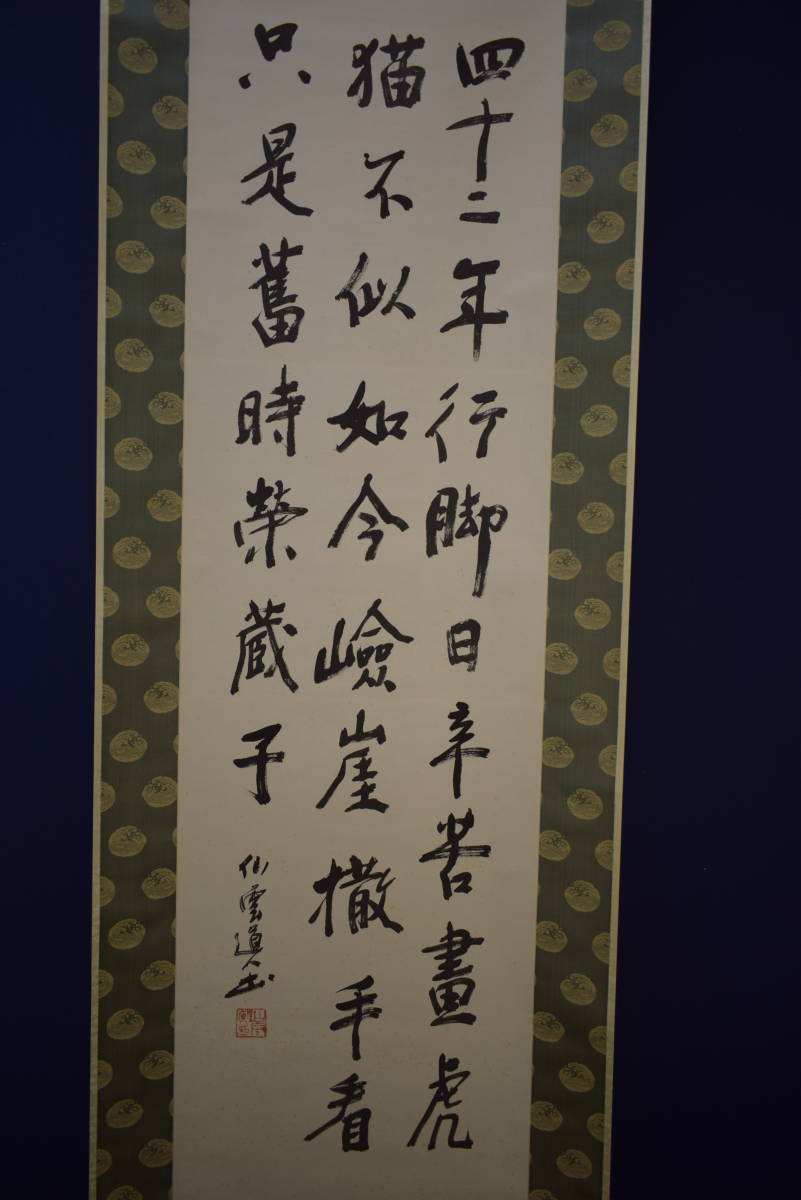 四十二年行脚日辛苦畫虎
猫不似如今嶮崖撒手看
只是舊時榮蔵子
仙雲道人書